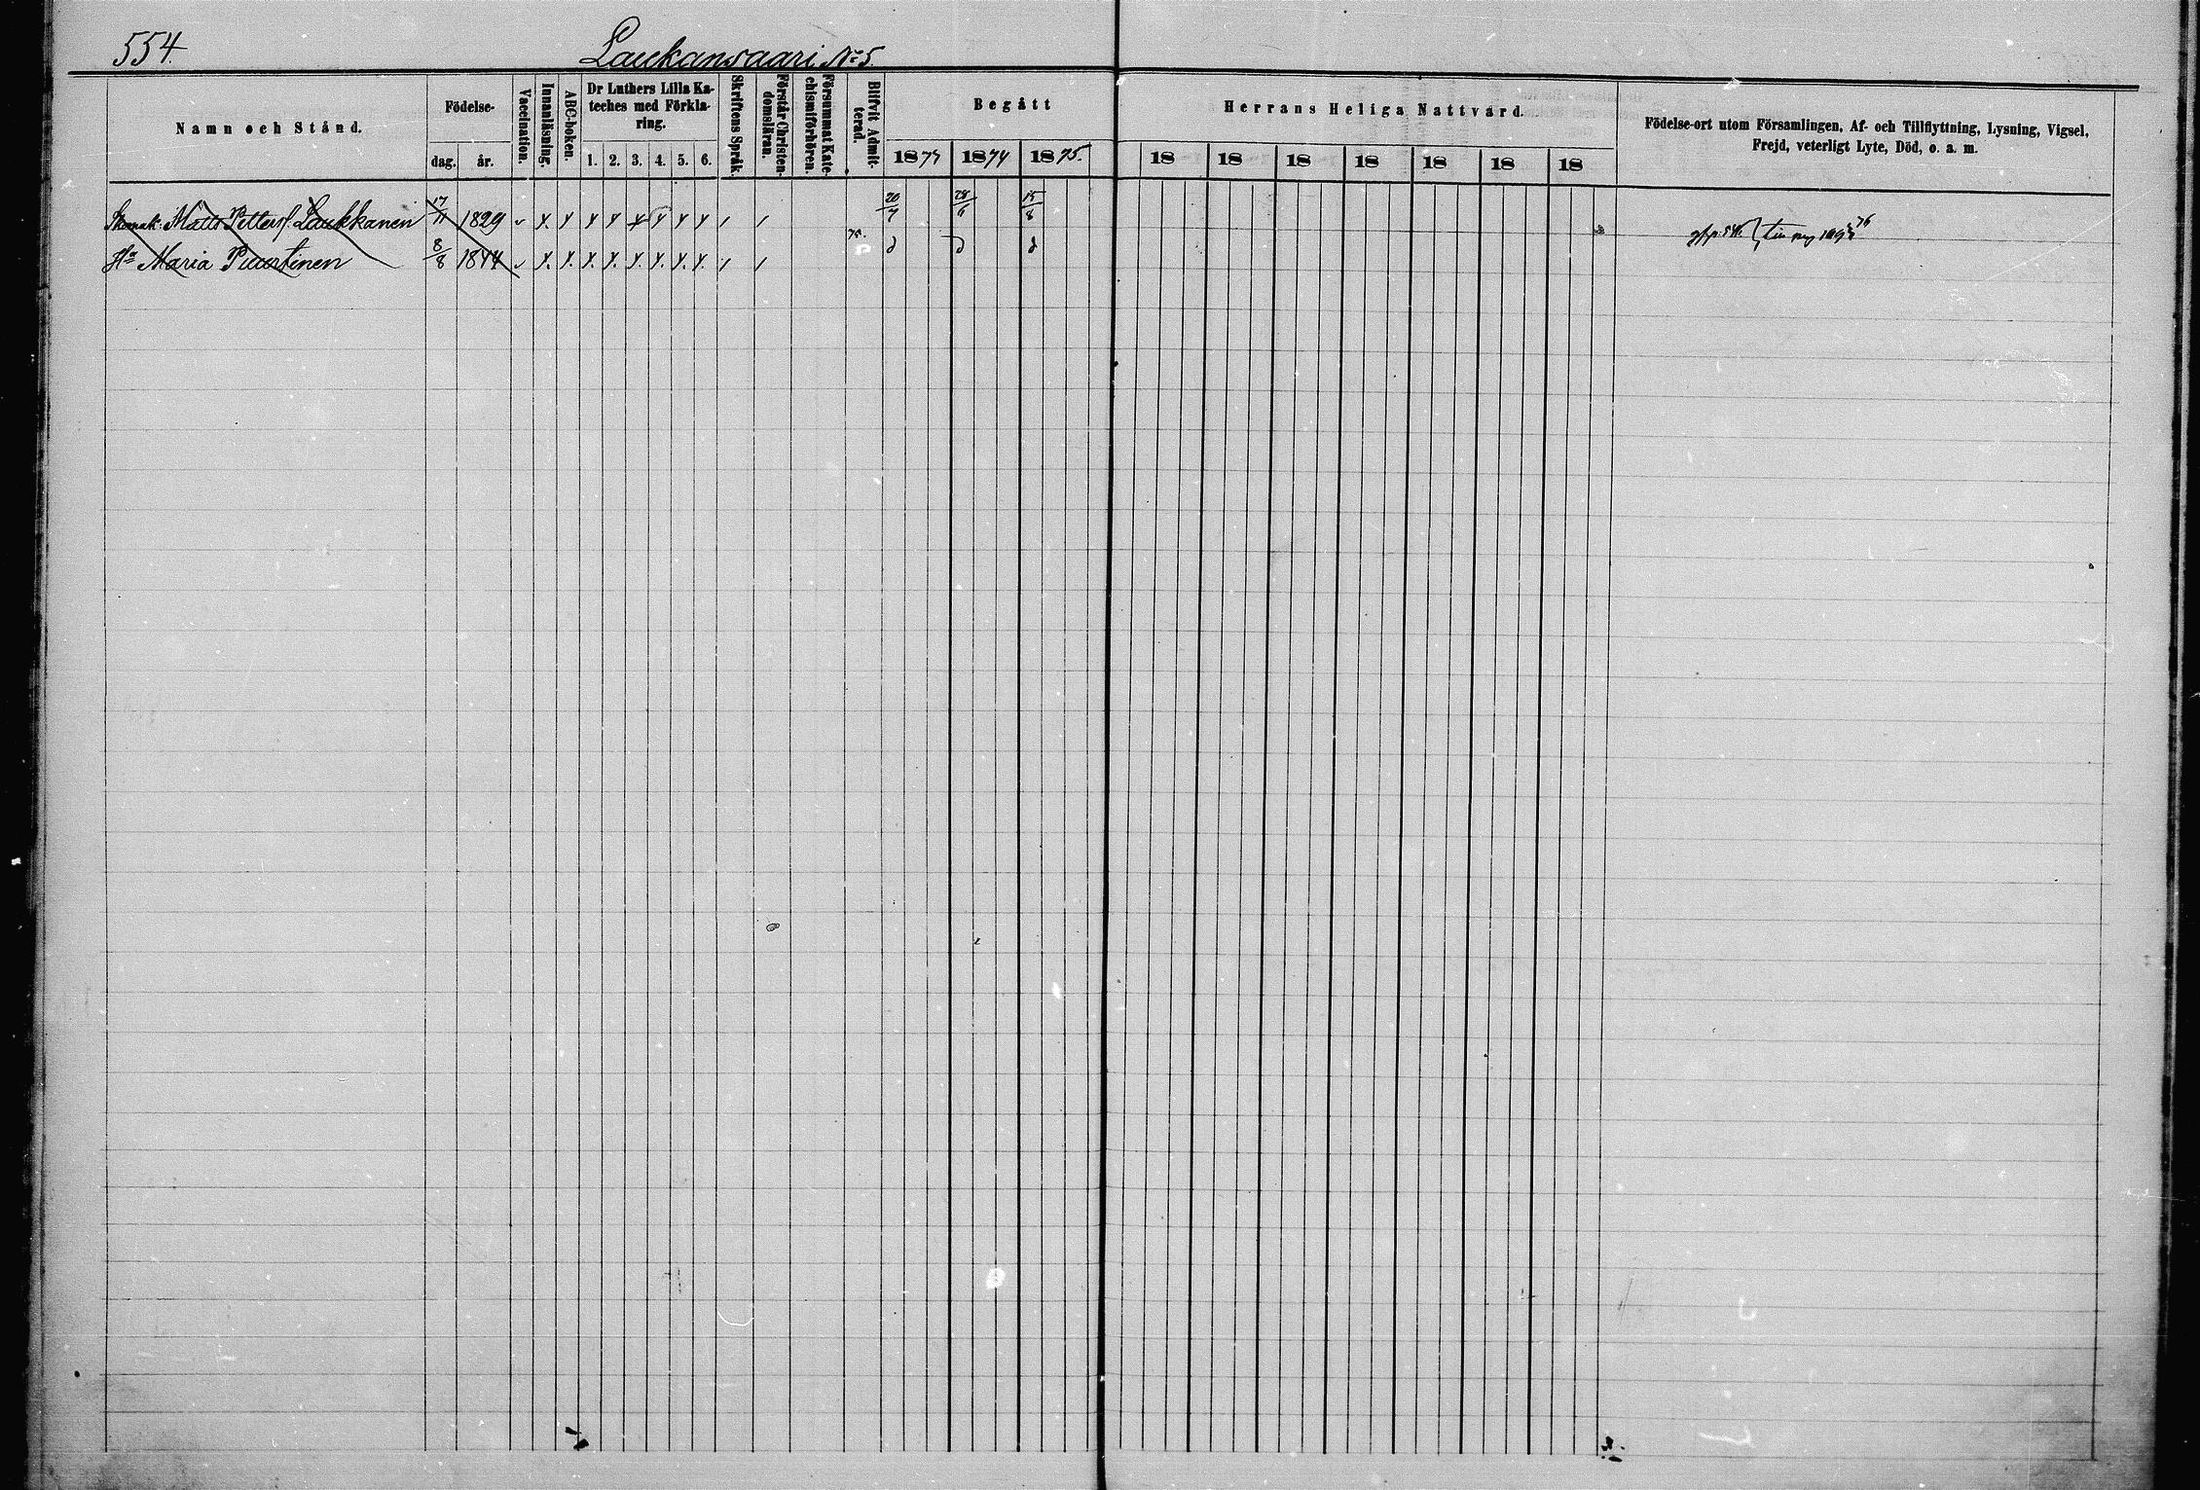 554.
Laukansaari No 5.
Namn och Stånd.
Födelse-
dag. år.
Vaccination.
Innanläsning.
ABC-boken.
Dr Luthers Lilla Ka-
teches med Förkla-
ring.
1. 2. 3. 4. 5. 6.
Skriftens Språk.
Förstår Christen-
domsläran.
Försummat Kate-
chismiförhören.
Blifvit Admit-
terad.
Begått
1873 1874 1875.
Herrans Heliga Nattvard.
18 18 18 18 18 18 18
Födelse-ort utom Församlingen, Af- och Tillflyttning, Lysning, Vigsel,
Frejd, veterligt Lyte, Död, o. a. m.
Matts Petters. Laukkanen 17/11 1829 v x. x x x x x x x / / 20/7 28/6 15/8
Hu Maria Puurtinen 8/8 1844 v x. x. x. x. x. x. x. x. / / d d d